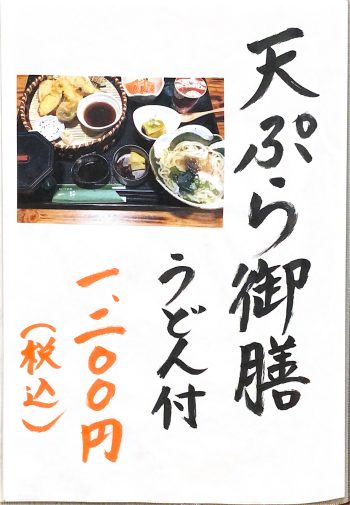 天ぷら御膳
うどん付
一、二〇〇円
（税込）